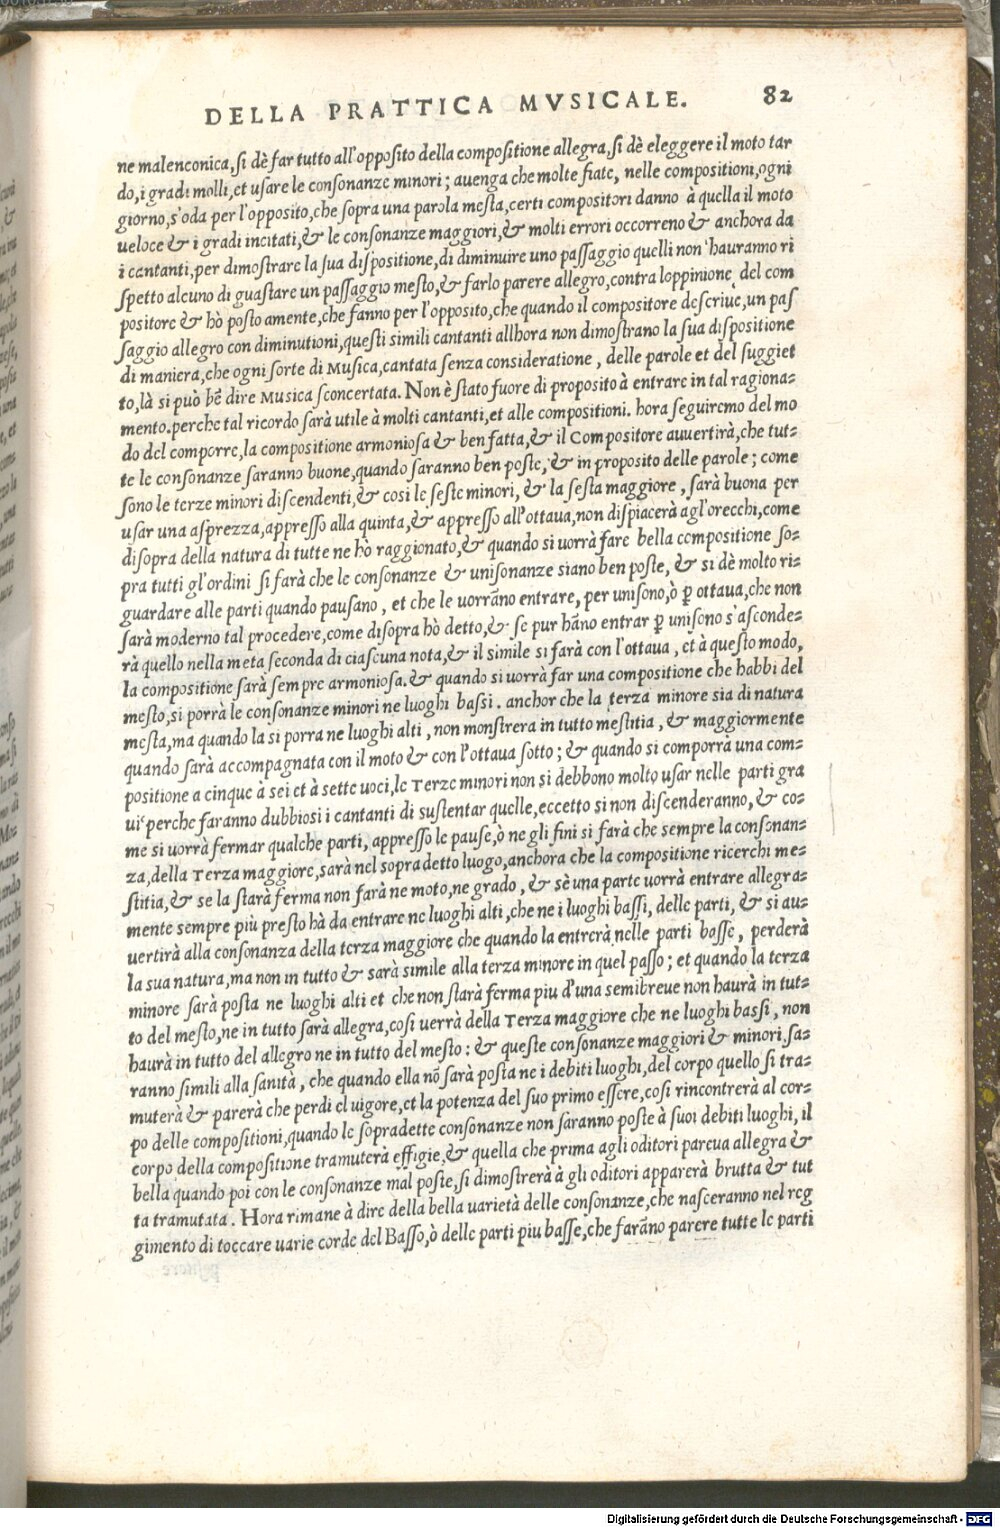 DELLA PRATTICA MVSICALE. 82
ne malenconica, si dè far tutto all'opposito della compositione allegra, si dè eleggere il moto tar
do, i gradi molli, et usare le consonanze minori; auenga che molte fiate, nelle compositioni, ogni
giorno, s'oda per l'opposito, che sopra una parola mesta, certi compositori danno à quella il moto
ueloce & i gradi incitati, & le consonanze maggiori, & molti errori occorreno & anchora da
i cantanti, per dimostrare la sua dispositione, di diminuire uno passaggio quelli non hauranno ri
spetto alcuno di guastare un passaggio mesto, & farlo parere allegro, contra loppinione del com
positore & hò posto amente, che fanno per l'opposito, che quando il compositore descriue, un pas
saggio allegro con diminutioni, questi simili cantanti allhora non dimostrano la sua dispositione
di maniera, che ogni sorte di Musica, cantata senza consideratione, delle parole et del suggiet
to, là si può bẽ dire Musica sconcertata. Non è stato fuore di proposito à entrare in tal ragiona=
mento. perche tal ricordo sarà utile à molti cantanti, et alle compositioni. hora seguiremo del mo
do del comporre, la compositione armoniosa & ben fatta, & il Compositore auuertirà, che tut=
te le consonanze saranno buone, quando saranno ben poste, & in proposito delle parole; come
sono le terze minori discendenti, & cosi le seste minori, & la sesta maggiore, sarà buona per
usar una asprezza, appresso alla quinta, & appresso all'ottaua, non dispiacerà agl'orecchi, come
disopra della natura di tutte ne hò raggionato, & quando si uorrà fare bella compositione so=
pra tutti gl'ordini si farà che le consonanze & unisonanze siano ben poste, & si dè molto ri=
guardare alle parti quando pausano, et che le uorrãno entrare, per unisono, ò ꝑ ottaua, che non
sarà moderno tal procedere, come disopra hò detto, & se pur hãno entrar ꝑ unisono s'asconde=
rà quello nella meta seconda di ciascuna nota, & il simile si farà con l'ottaua, et à questo modo,
la compositione sarà sempre armoniosa. & quando si uorrà far una compositione che habbi del
mesto, si porrà le consonanze minori ne luoghi bassi. anchor che la terza minore sia di natura
mesta, ma quando la si porra ne luoghi alti, non monstrera in tutto mestitia, & maggiormente
quando sarà accompagnata con il moto & con l'ottaua sotto; & quando si comporrà una com=
positione a cinque à sei et à sette uoci, le Terze minori non si debbono molto usar nelle parti gra
ui perche faranno dubbiosi i cantanti di sustentar quelle, eccetto si non discenderanno, & co=
me si uorrà fermar qualche parti, appresso le pause, ò ne gli fini si farà che sempre la consonan=
za, della Terza maggiore, sarà nel sopra detto luogo, anchora che la compositione ricerchi me=
stitia, & se la starà ferma non farà ne moto, ne grado, & sè una parte uorrà entrare allegra=
mente sempre più presto hà da entrare ne luoghi alti, che ne i luoghi bassi, delle parti, & si au=
uertirà alla consonanza della terza maggiore che quando la entrerà nelle parti basse, perderà
la sua natura, ma non in tutto & sarà simile alla terza minore in quel passo; et quando la terza
minore sarà posta ne luoghi alti et che non starà ferma piu d'una semibreue non haurà in tut=
to del mesto, ne in tutto sarà allegra, cosi uerrà della Terza maggiore che ne luoghi bassi, non
haurà in tutto del allegro ne in tutto del mesto: & queste consonanze maggiori & minori, sa=
ranno simili alla sanità, che quando ella nõ sarà posta ne i debiti luoghi, del corpo quello si tra=
muterà & parerà che perdi el uigore, et la potenza del suo primo essere, cosi rincontrerà al cor=
po delle compositioni, quando le sopradette consonanze non saranno poste à suoi debiti luoghi, il
corpo della compositione tramuterà effigie, & quella che prima agli oditori pareua allegra &
bella quando poi con le consonanze mal poste, si dimostrerà à gli oditori apparerà brutta & tut
ta tramutata. Hora rimane à dire della bella uarietà delle consonanze, che nasceranno nel reg
gimento di toccare uarie corde del Basso, ò delle parti piu basse, che farãno parere tutte le parti
Digitalisierung gefördert durch die Deutsche Forschungsgemeinschaft - DFG